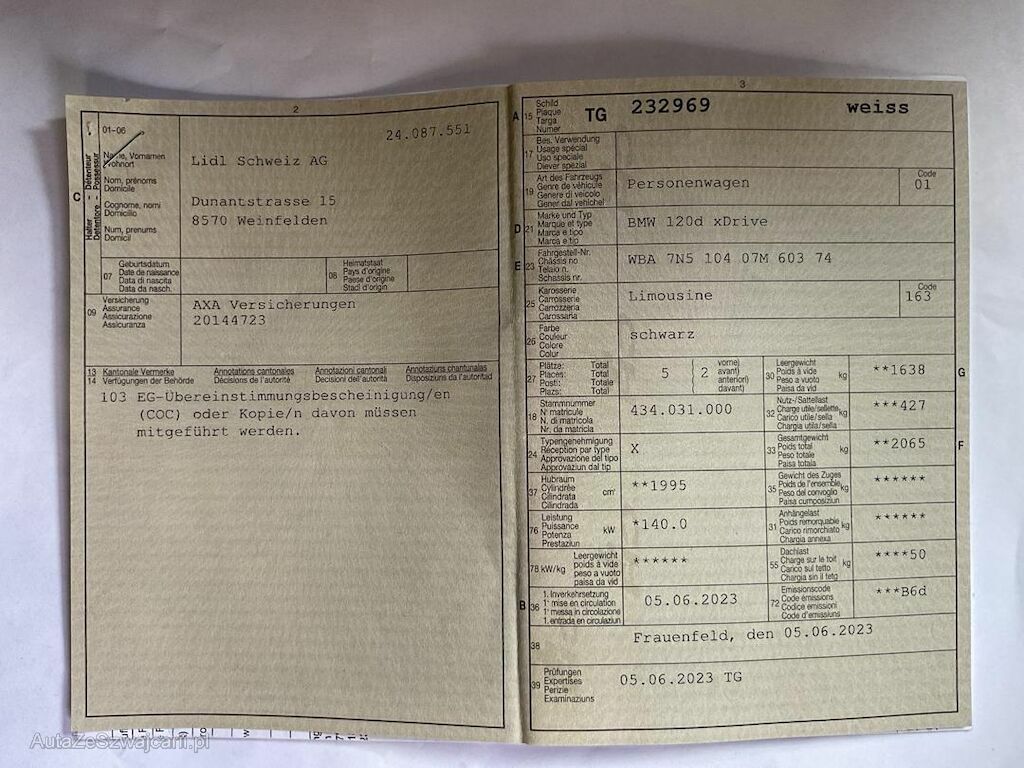 2
01-06
Name, Vornamen
Wohnort
Nom, prénoms
Domicile
Cognome, nomi
Domicilio
Num, prenums
Domicil
C
Halter - Détenteur
Detentore - Possessur
24.087.551
Lidl Schweiz AG
Dunantstrasse 15
8570 Weinfelden
07
Geburtsdatum
Date de naissance
Data di nascita
Data da nasch.
08
Heimatstaat
Pays d'origine
Paese d'origine
Stadi d'origin
09
Versicherung
Assurance
Assicurazione
Assicuranza
AXA Versicherungen
20144723
13 Kantonale Vermerke Annotations cantonales Annotazioni cantonali Annotaziuns chantunalas
14 Verfügungen der Behörde Décisions de l'autorité Decisioni dell'autorità Disposiziuns da l'autoritad
103 EG-Übereinstimmungsbescheinigung/en
(COC) oder Kopie/n davon müssen
mitgeführt werden.
3
A 15
Schild
Plaque
Targa
Numer
TG 232969 weiss
17
Bes. Verwendung
Usage spécial
Uso speciale
Diever spezial
19
Art des Fahrzeugs
Genre de véhicule
Genere di veicolo
Gener dal vehichel
Personenwagen
Code
01
D 21
Marke und Typ
Marque et type
Marca e tipo
Marca e tip
BMW 120d xDrive
E 23
Fahrgestell-Nr.
Châssis no
Telaio n.
Schassis nr.
WBA 7N5 104 07M 603 74
25
Karosserie
Carrosserie
Carrozzeria
Carossaria
Limousine
Code
163
26
Farbe
Couleur
Colore
Colur
schwarz
27
Plätze: Total
Places: Total
Posti: Totale
Plazs: Total
5
2
vorne)
avant)
anteriori)
davant)
30
Leergewicht
Poids à vide
Peso a vuoto
Paisa da vid
kg
**1638
G
18
Stammnummer
N° matricule
N. di matricola
Nr. da matricla
434.031.000
32
Nutz-/Sattellast
Charge utile/sellette
Carico utile/sella
Chargia utila/sella
kg
***427
24
Typengenehmigung
Réception par type
Approvazione del tipo
Approvaziun dal tip
X
33
Gesamtgewicht
Poids total
Peso totale
Paisa totala
kg
**2065
F
37
Hubraum
Cylindrée
Cilindrata
Cilindrada
cm³
**1995
35
Gewicht des Zuges
Poids de l'ensemble
Peso del convoglio
Paisa cumposiziun
kg
******
76
Leistung
Puissance
Potenza
Prestaziun
kW
*140.0
31
Anhängelast
Poids remorquable
Carico rimorchiato
Chargia annexa
kg
******
78 kW/kg
Leergewicht
poids à vide
peso a vuoto
paisa da vid
******
55
Dachlast
Charge sur le toit
Carico sul tetto
Chargia sin il tetg
kg
****50
B 36
1. Inverkehrsetzung
1ʳᵉ mise en circulation
1ª messa in circolazione
1. entrada en circulaziun
05.06.2023
72
Emissionscode
Code émissions
Codice emissioni
Code d'emissiuns
***B6d
38
Frauenfeld, den 05.06.2023
39
Prüfungen
Expertises
Perizie
Examinaziuns
05.06.2023 TG
AutaZeSzwajcarii.pl